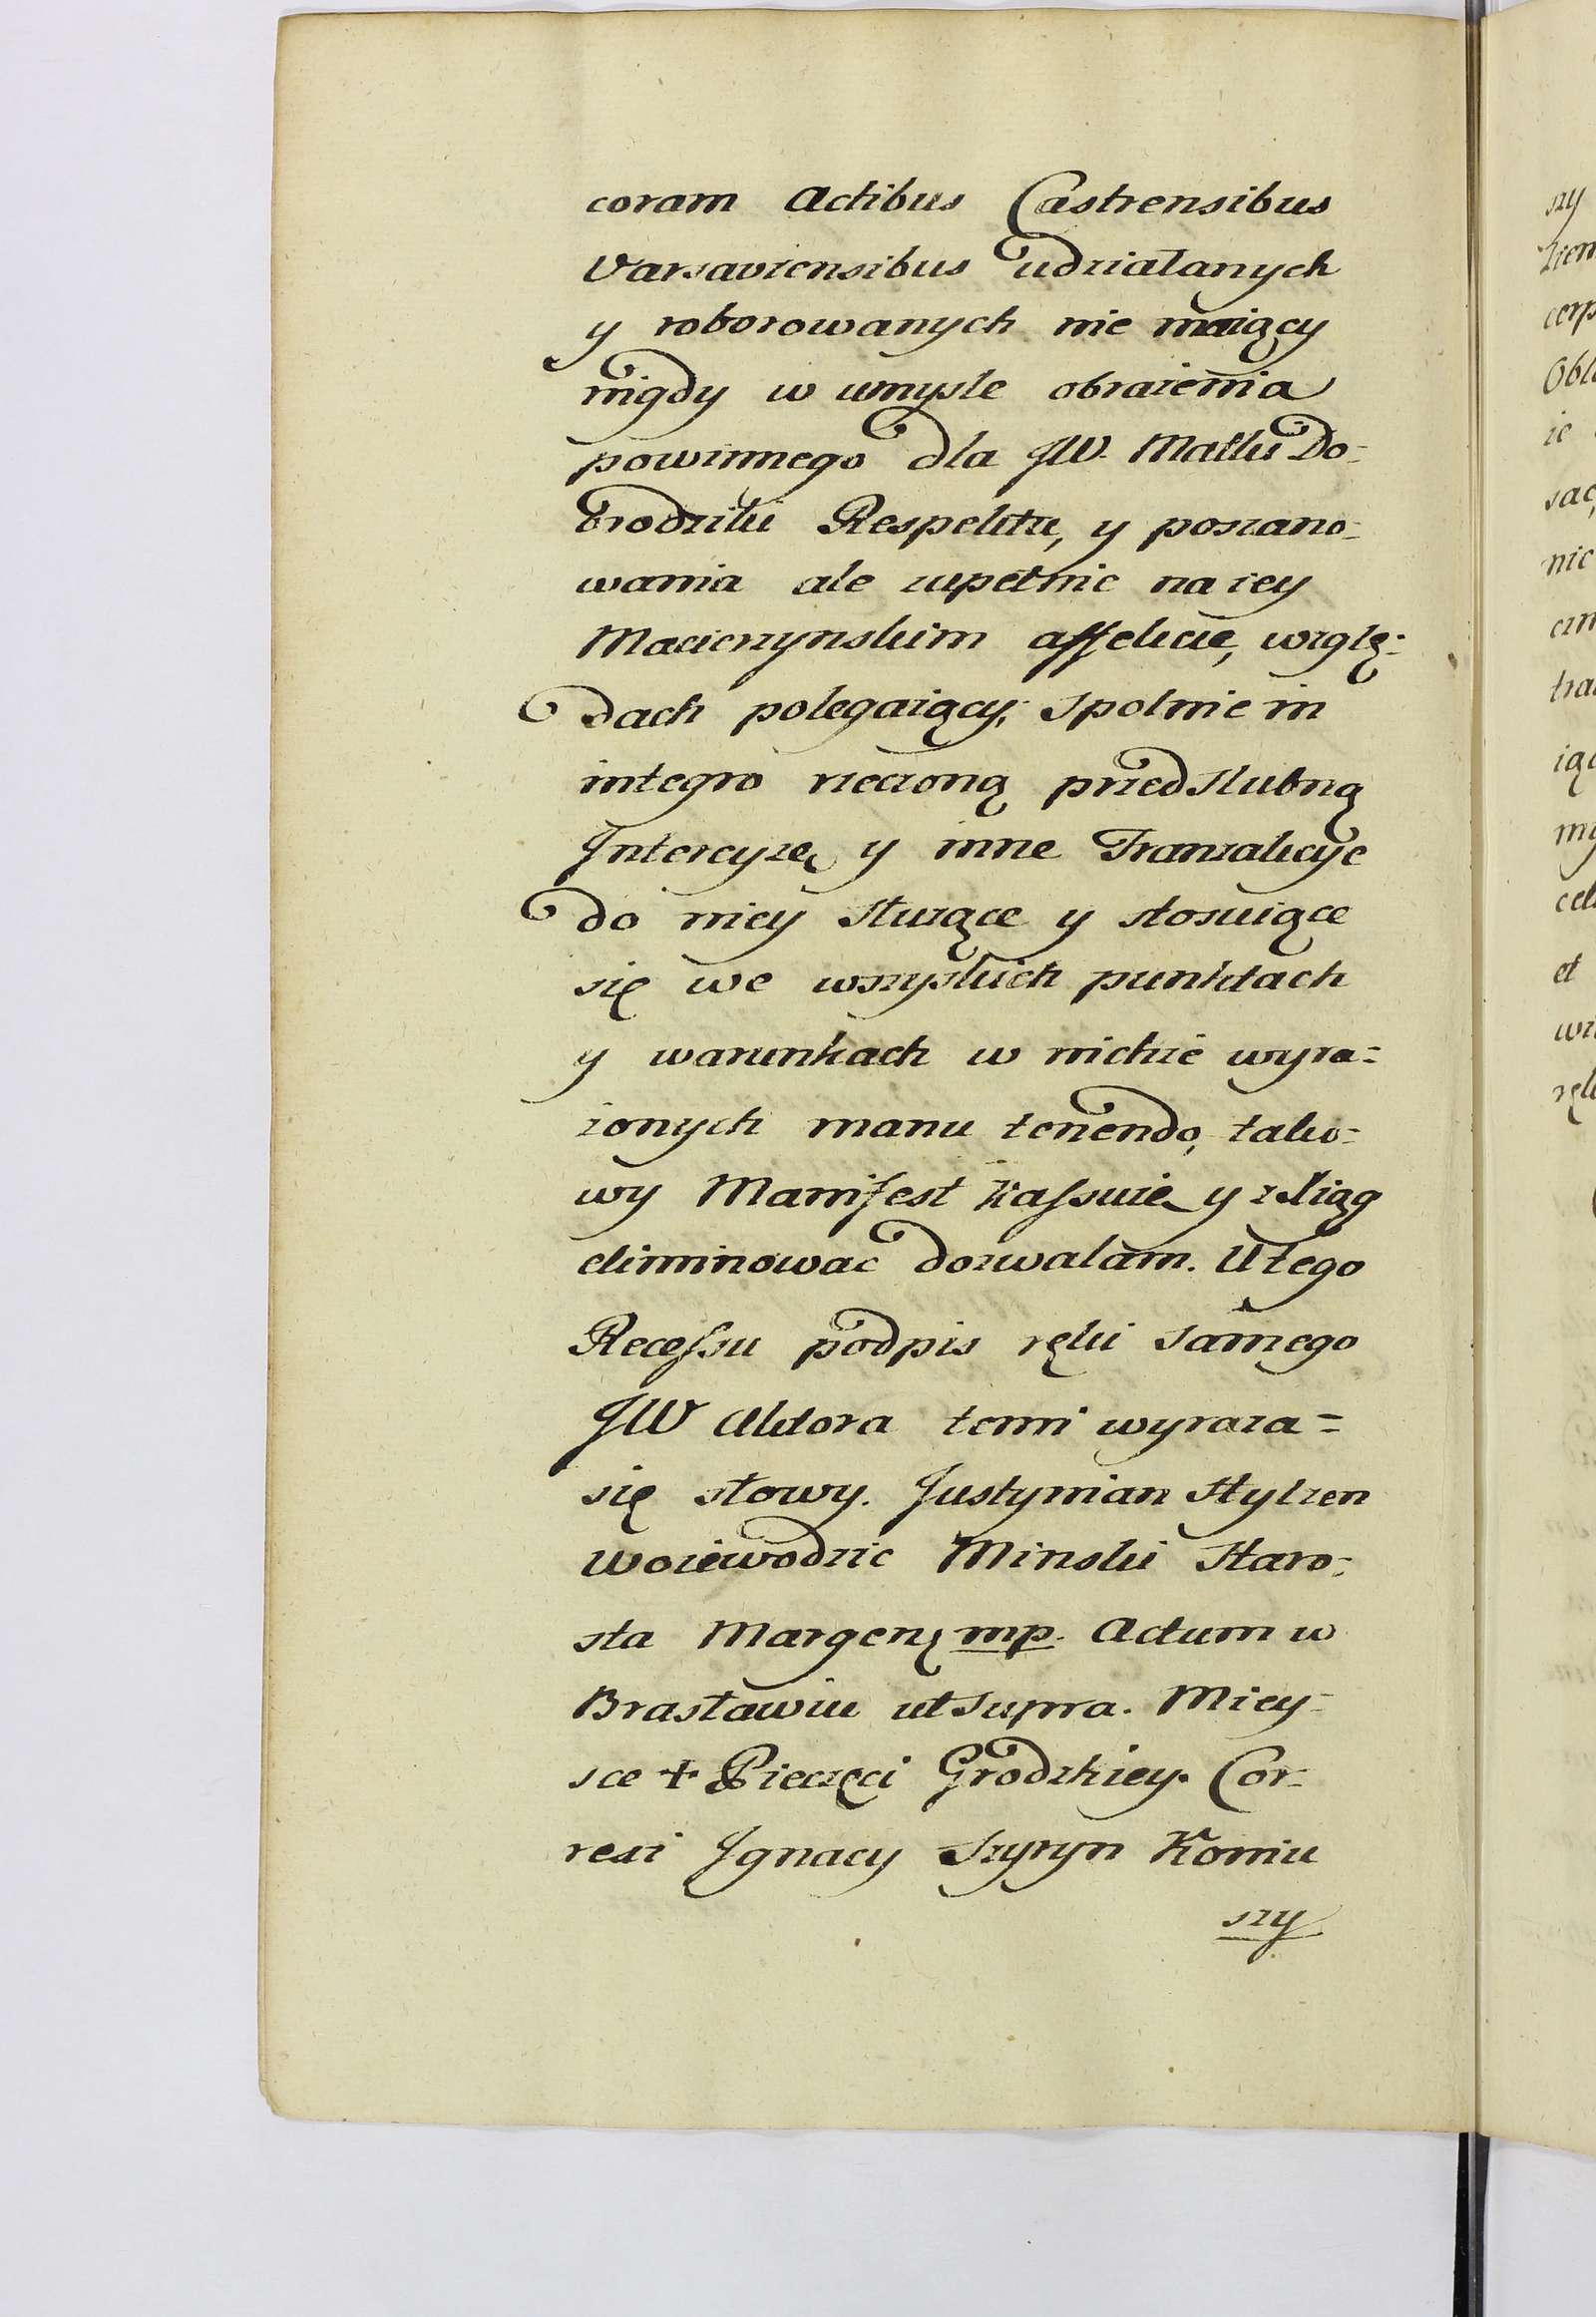 coram Actibus Castrensibus
Varsaviensibus udziałanych
y roborowanych nie maiący
nigdy w umysle obrazenia
powinnego dla JW. Matki Do-
brodziki Respektu, y poszano-
wania ale zupełnie na iey
Macierzynskim affekcie, wzglę-
dach polegaiący, spolnie in
integro rzeczoną przed slubną
Intercyzę y inne Tranzakcye
do niey służące y stosuiące
się we wszystkich punktach
y warunkach w nichze wyra-
zonych manu tenendo, tako-
wy Manifest kassuie y z Xiąg
eliminować dozwalam. U tego
Recessu podpis ręki samego
JW Aktora temi wyraza=
się słowy. Justynian Hylzen
Woiewodzic Minski Staro-
sta Margen, mp. Actum w
Brasławiu ut supra. Miey-
sce + Pieczęci Grodzkiey. Cor-
rexi Ignacy Szyryn Koniu
szy
szy